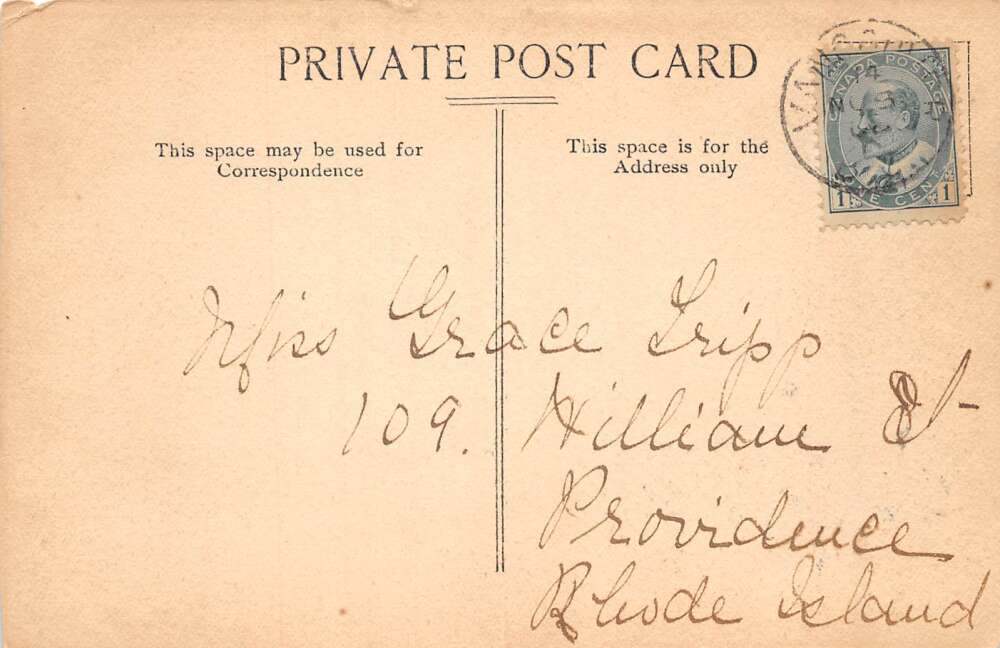 PRIVATE POST CARD
This space may be used for
Correspondence
This space is for the
Address only
CANADA POSTAGE
1 ONE CENT 1
Miss Grace Tripp
109. William St
Providence
Rhode Island